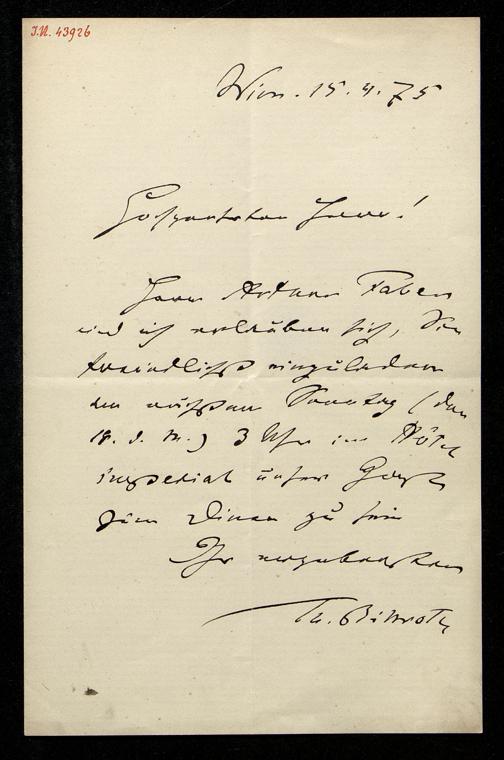 I.N. 43926
Wien. 15.4.75
Hochgeehrter Herr!
Herr Arthur Faber
und ich erlauben sich, Sie
freundlichst einzuladen
am nächsten Sonntag (den
18. d. M.) 3 Uhr im Hôtel
imperial unser Gast
zum Diner zu sein
Ihr ergebenster
Th. Billroth